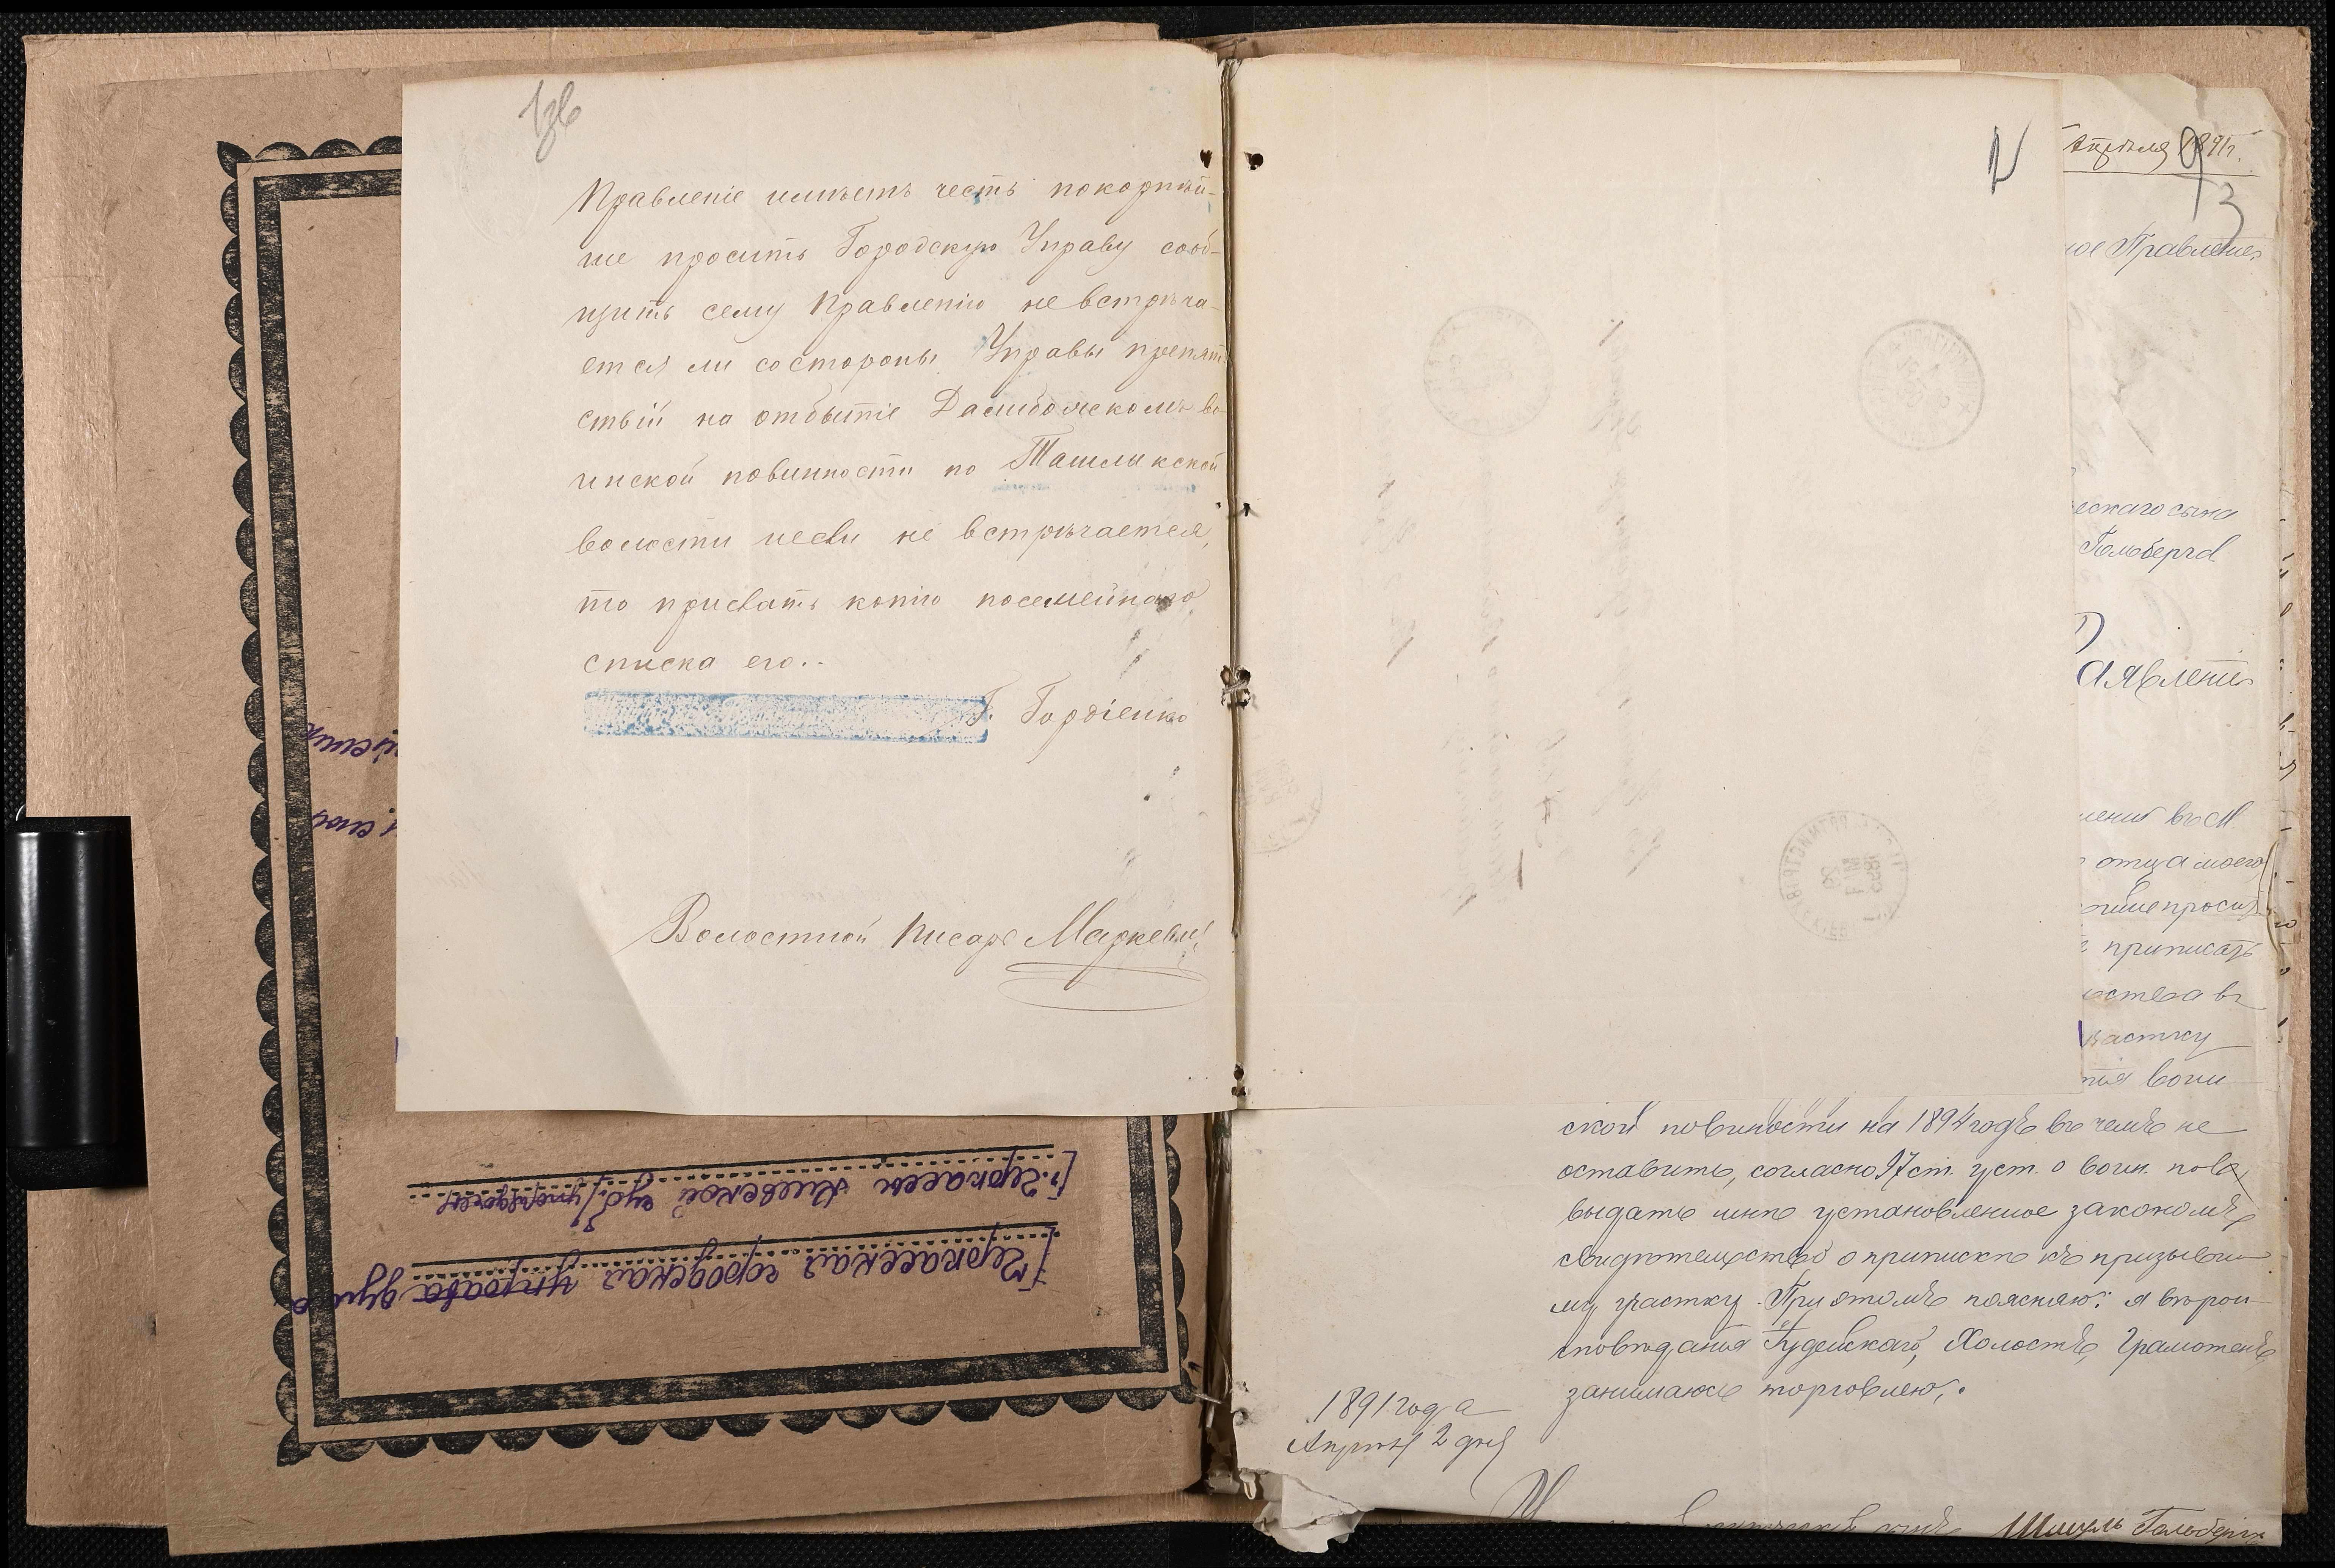 Правленіе имѣетъ честь покорнѣй-
ше просить Городскую Управу сооб-
щить сему Правленію не встрѣча-
ется ли состороны Управы препят
ствій на отбытіе во
инской повинности по Ташлыкской
волости иесли не встрѣчается,
то прислать копію посемейнаго
списка его..
Г. Гордіенко
Волостной Писарь Маркевичъ
Апрѣля 1891г.
3
ое Правленіе
ескаго сына
Гольберга
аявленіе
ленія въ М
отца моего
приписать
ства въ
частку
тія воин
ской повиности на 1894 годъ въ чемъ не
оставить, согласно 97 ст. уст. о воин. пов.
выдать мнѣ установленное закономъ
свидѣтельство о припискѣ къ призывно
му участку. При этомъ поясняю: я вѣрои
сповѣданія Іудейскаго, Холостъ, Грамотенъ,
занимаюсь торговлею.
1891 года
Апрѣля 2 дня
Шмуль Гольбергъ
Черкасская городская управа дума
г. Черкассы Киевской губ.